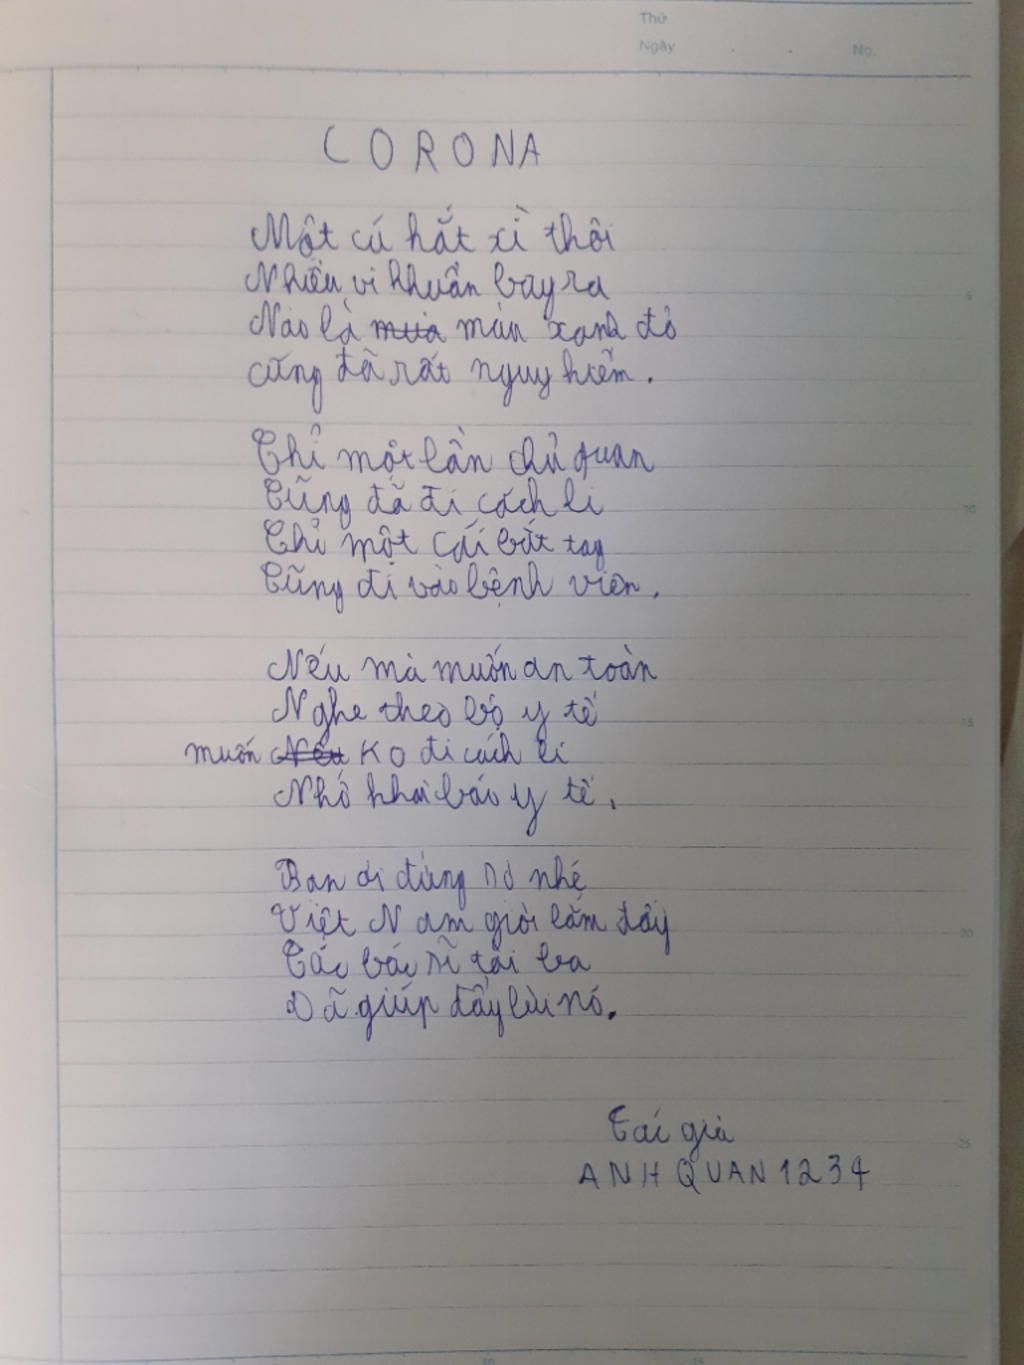 Thứ
Ngày . . No.
CORONA
Một cú hắt xì thôi
Nhiều vi khuẩn bay ra
5
Nào là mưa màu xanh đỏ
cũng đã rất nguy hiểm.
Chỉ một lần chủ quan
Cũng đã đi cách li
10
Chỉ một cái bắt tay
Cũng đi vào bệnh viên.
Nếu mà muốn an toàn
Nghe theo bộ y tế
15
muốn Nếu KO đi cách li
Nhớ khai báo y tế.
Bạn ơi đừng sợ nhé
Việt Nam giỏi lắm đấy
20
Các bác sĩ tài ba
Đã giúp đẩy lùi nó.
Tác giả
25
ANH QUAN 1234